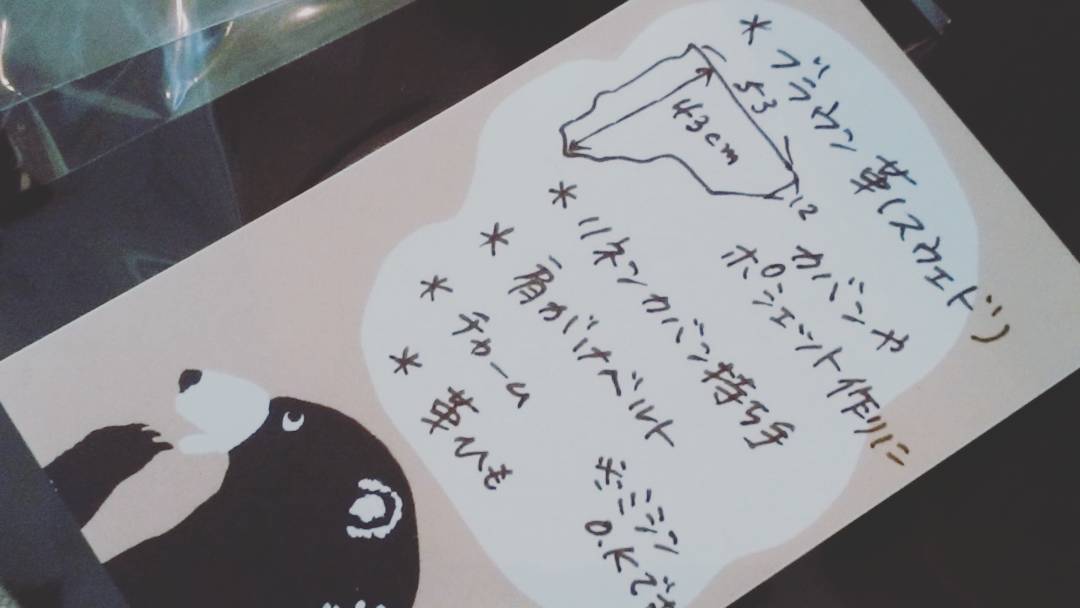 * ブラウン革(スウェード)
53
43cm
12
カバンや
ポシェット作りに
* リネンカバン持ち手
* 肩がけベルト
* チャーム
* 革ひも
※ミシン
O.Kです